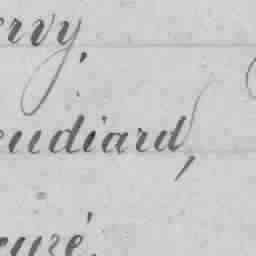 ervy,
eudiard,
curé.